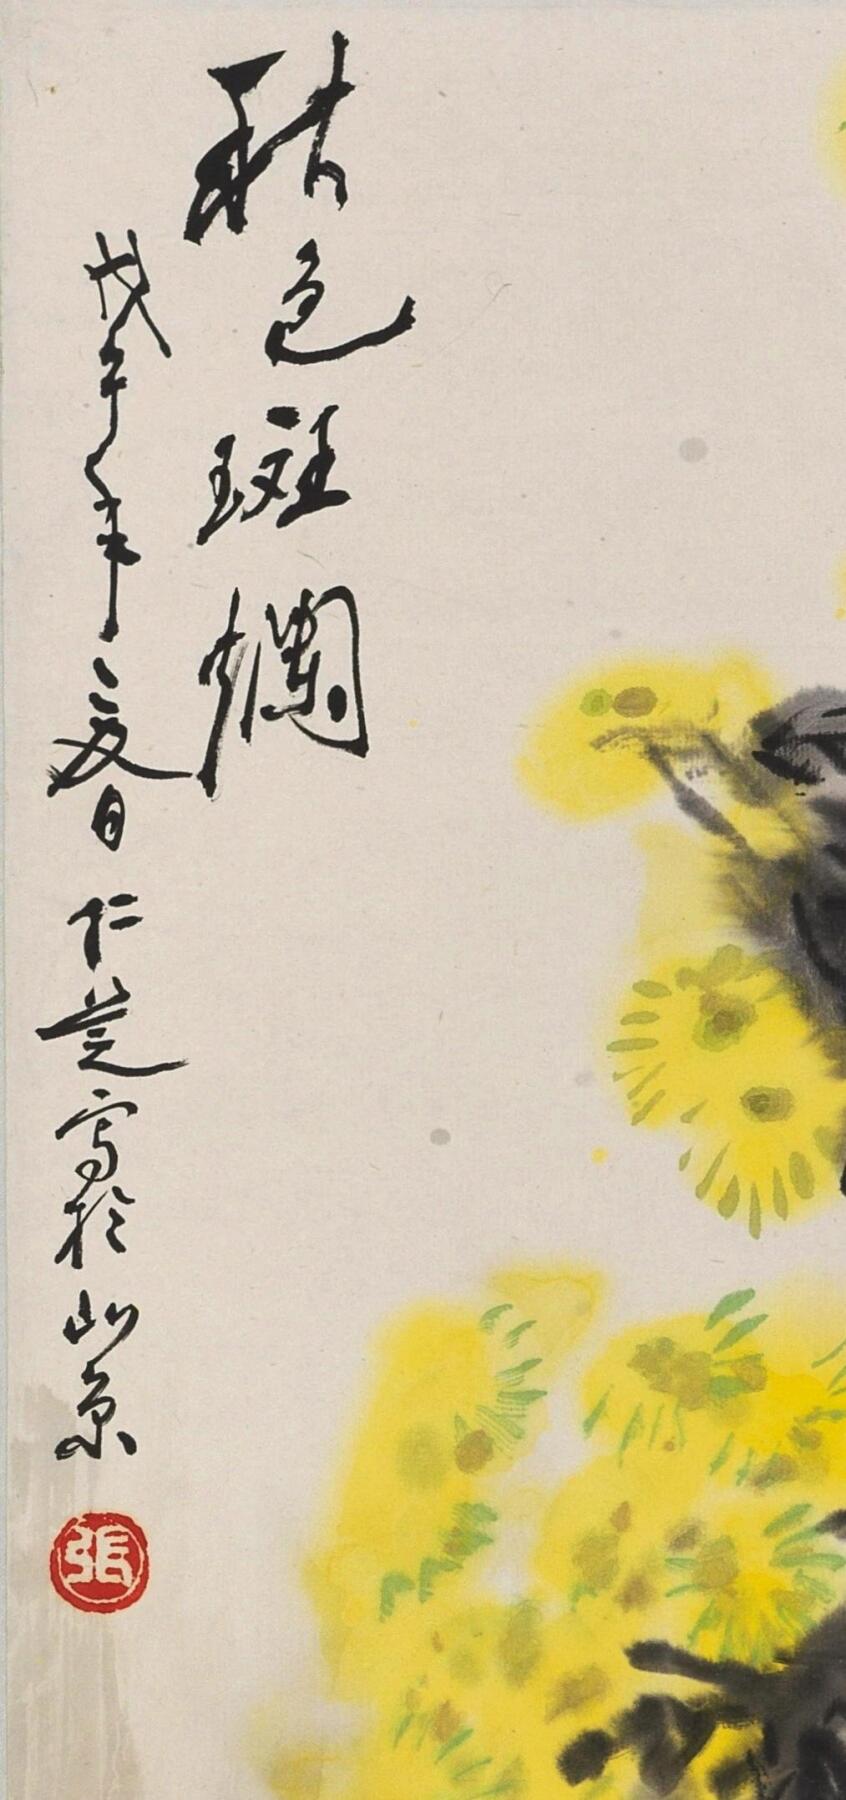 秋色斑爛
戊午年夏日仁芝寫於北京
張